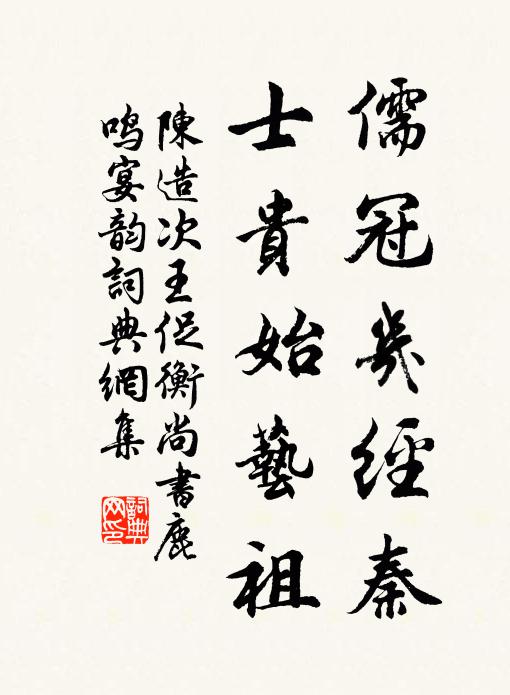 儒冠幾經秦
士貴始藝祖
陳造次王促衡尚書鹿
鳴宴韵詞典網集
詞典网印